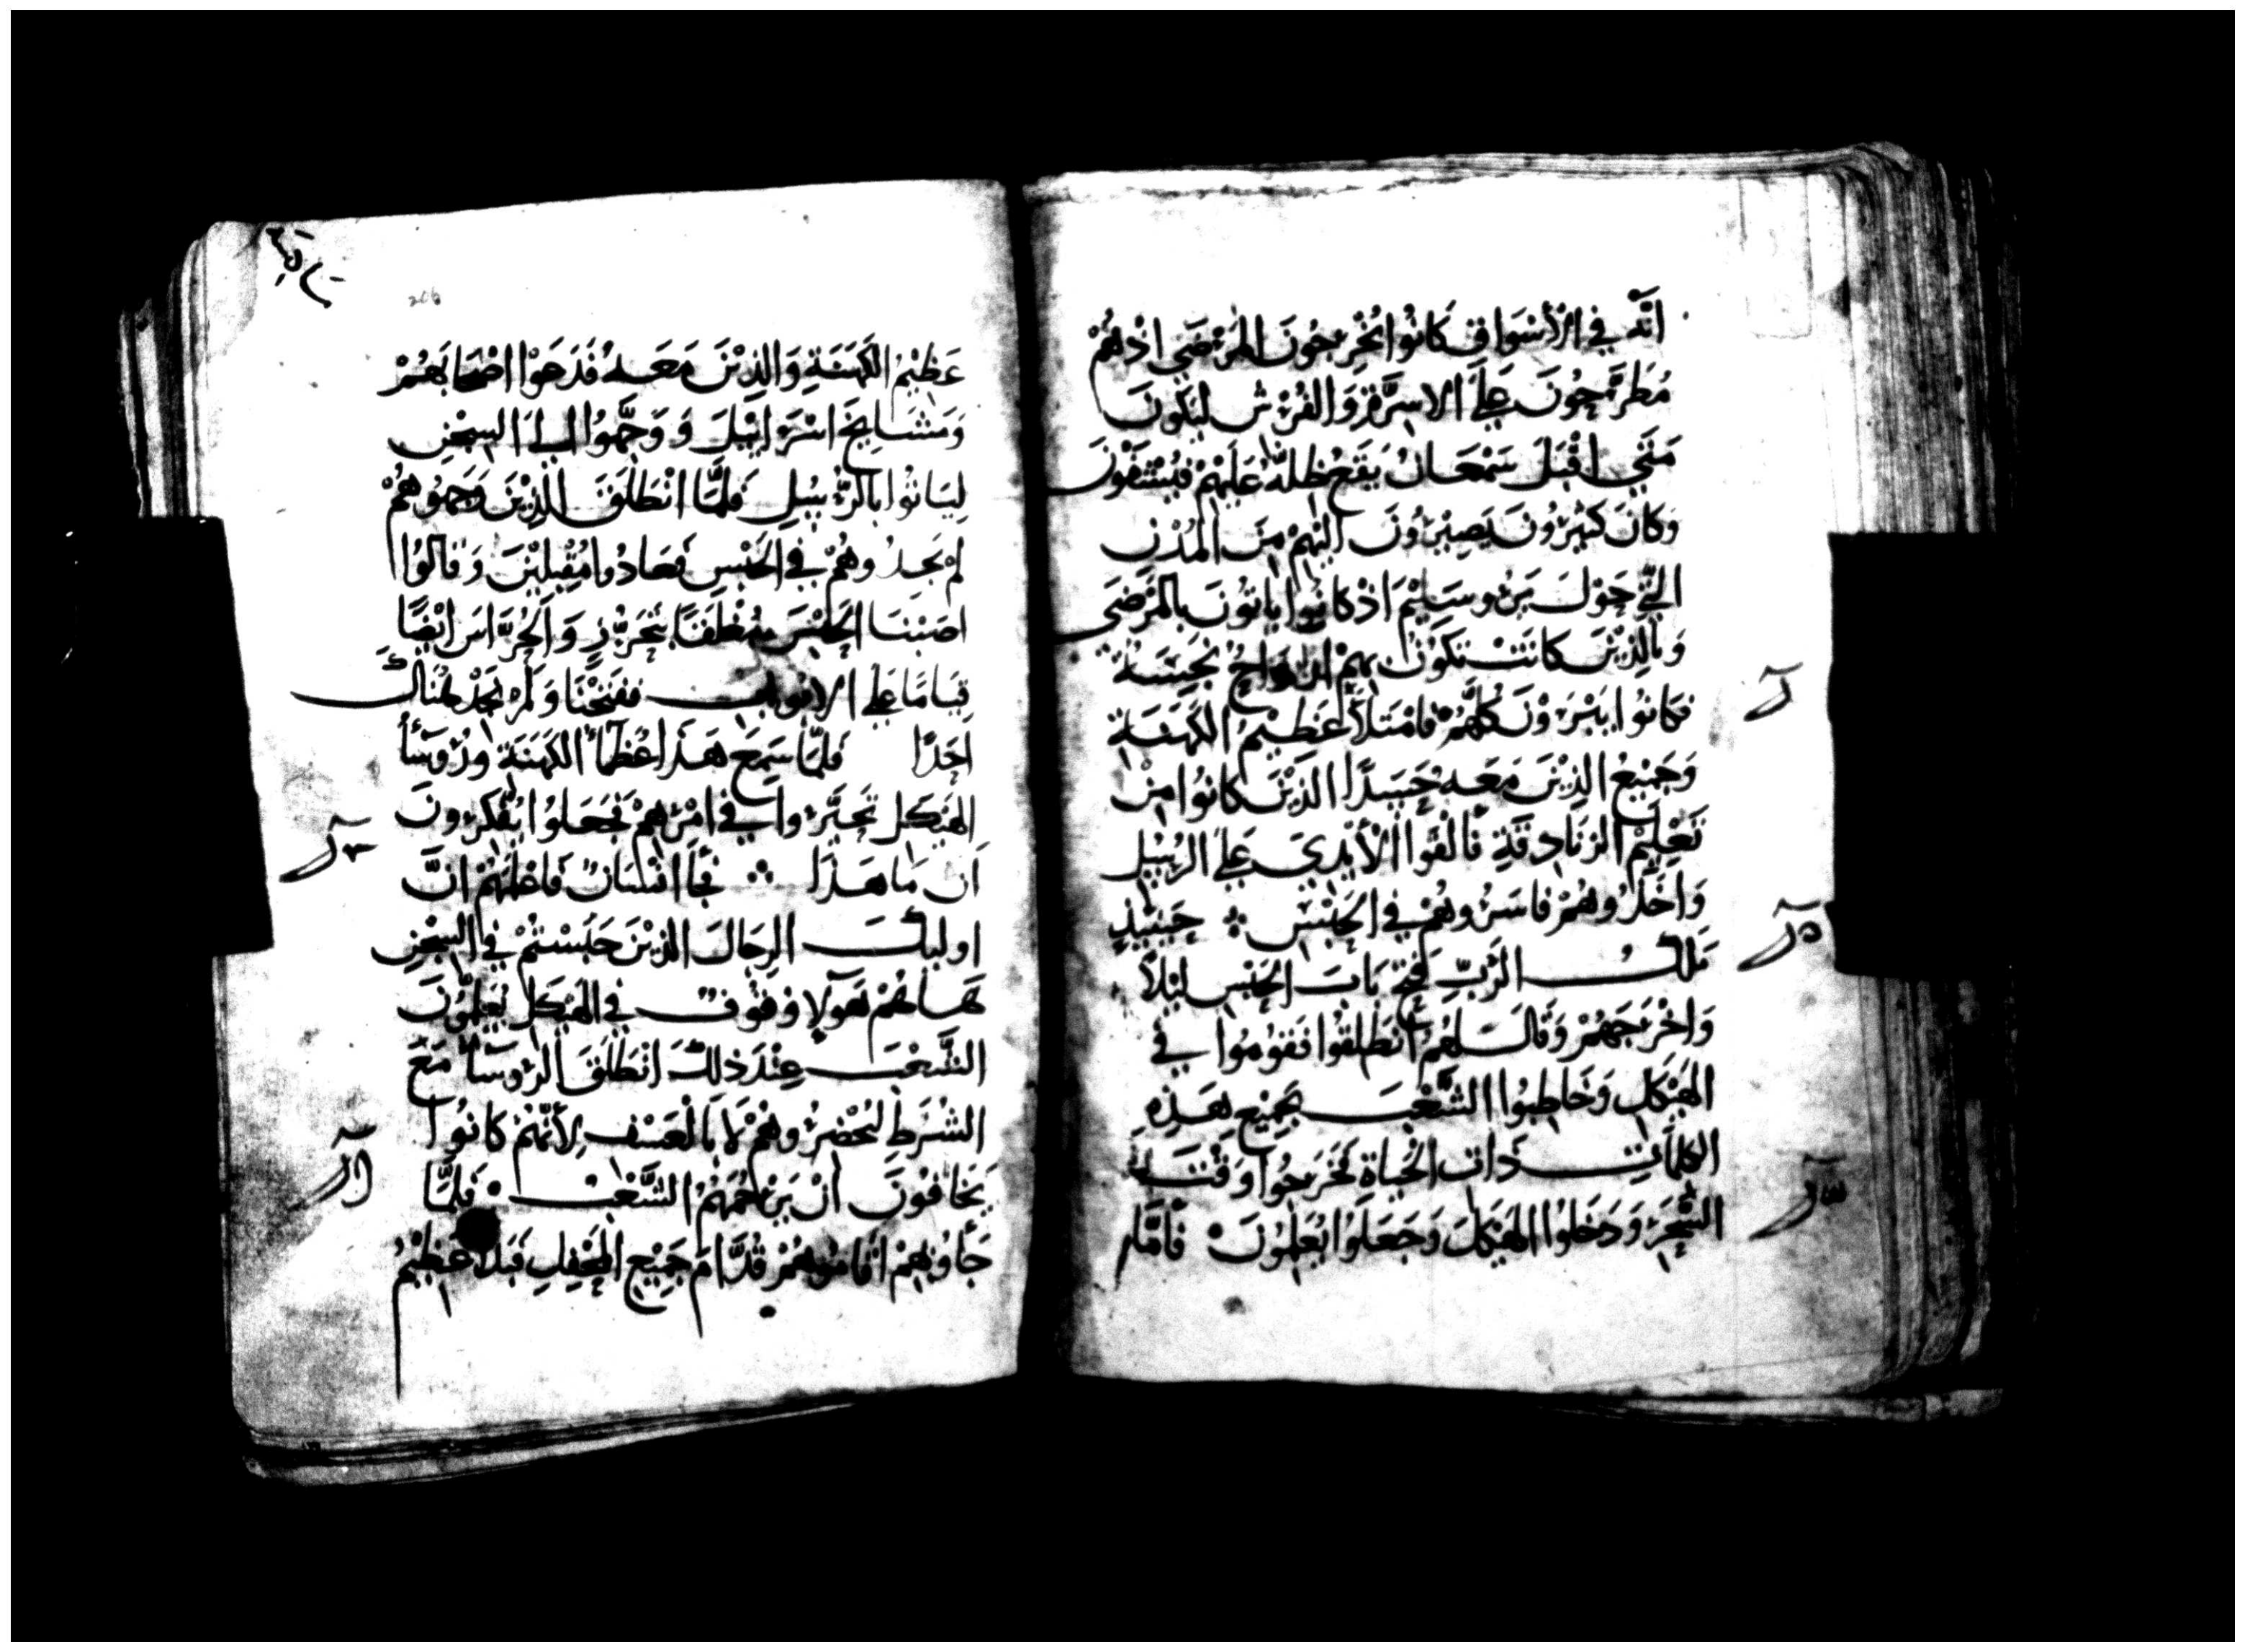 انَّه في الأسْوَاقِ كَانُوا يُخْرِجُونَ المَرْضَي اذْهُمْ
مُطَرَّحُونَ عَلَي الاسِرَّةِ وَالفُرُش ليَكونَ
مَتَي اقْبَلَ سَمْعَانُ يَقَعُ ظلهُ عَلَيْهِمْ فَيُشْفَوْنَ
وَكَانَ كَثِيْرُونَ يَصِيْرُونَ اليْهِمْ مِنَ المُدُنِ
التي حَوْلَ يَرُوسَلِيْمَ اذْ كانُوا ياتُونَ بالمَرْضَي
وَبالذِيْنَ كانَتْ تَكُونُ بهِمْ ارْوَاحُ نجِسَةُ
فكانُوا يَبْرَوْنَ كلهُمْ فامْتَلأَ عَظِيْمُ الكَهَنَةِ
وَجَمِيْعُ الذِيْنَ مَعَهُ حَسَدًا الذِيْنَ كانُوا مِنْ
تَعْلِيْمِ الزنَادِقَةِ فَالْقَوْا الأيْدِيَ عَلي الرُسُلِ
وَاخَذُوهُمْ فاسَرُوهُمْ في الحَبْسِ ۞ حِيْنَيذٍ
مَلَاكُ الرَّبِّ فَتَحَ بَابَ الحَبْسِ ليْلاً
وَاخْرَجَهُمْ وَقالَ لهُمُ انْطَلِقُوا فَقُومُوا في
الهَيْكلِ وَخَاطِبُوا الشَّعْبَ بجَمِيْع هَذِهِ
الكلمَاتِ ذَات الحَيَاةِ فَخَرَجُوا وَقْتَ
السَّحَرِ وَدَخَلُوا الهَيْكلَ وَجَعَلُوا يُعَلمُونَ ۰ فَامَّا
206
عَظيْمُ الكَهَنَةِ وَالذِيْنَ مَعَهُ فَدَعَوْا اصْحَابَهُمْ
وَمَشَايِخَ اسْرَايْيلَ وَوَجَّهُوا الي السِجْنِ
لِيَاتُوا بالرُّسُلِ فَلمَّا انْطَلَقَ الذِيْنَ وَجَهُوهُمْ
لمْ يَجدُوهُمْ في الحَبْسِ فَعَادُوا مُقْبِلِيْنَ وَقالُوا
اصَبْنَا الحَبْسَ مُغْلَقًا بتَحَرُّزٍ وَالحُرَّاسَ ايْضًا
قيَامًا عَلي الابْوَابِ ففَتَحْنَا وَلَمْ نجِدْ هُنَاكَ
احَدًا فَلمَّا سَمِعَ هَذَا عُظمَاءُ الكَهَنَةِ وَرُوَسَأُ
الهَيْكل تحَيَّرُوا في امْرِهِمْ فَجَعَلُوا يُفَكرُونَ
اَن مَا هَذَا ۞ فَجَأَ انْسَانٌ فَاعْلَمَهُمْ انَّ
اوليكَ الرِجَالَ الذِيْنَ حَبَسْتُمْ في السِجْنِ
هَاهُمْ هَوَلآ وُقوُفٌ في الهَيْكل يُعَلّمُونَ
الشَّعْبَ عِنْدَ ذلكَ انْطَلَقَ الرُوَسَاءُ مَعَ
الشُرَطِ ليُحْضِرُوهُمْ لا بَالْعَسْفِ لأنَّهُمْ كانُوا
يَخَافُونَ انْ يَرْجُمَهُمُ الشَّعْبُ ۰ فَلمَّا
جَأوُا بِهِمْ اقامُوهُمْ قُدَّامَ جَمِيْعِ المَحْفِلِ فَبَدَا عَظِيْمُ